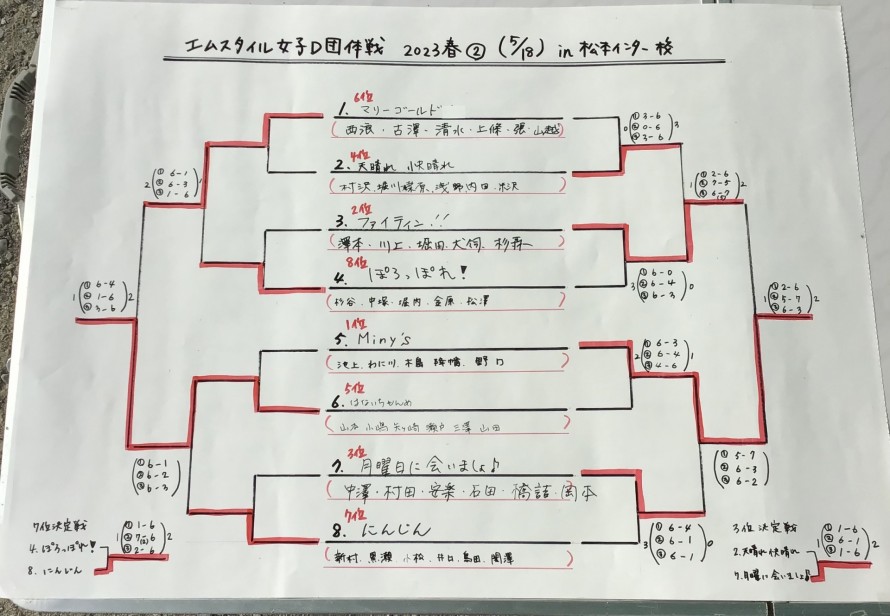 エムスタイル女子D団体戦 2023春② (5/18) in 松本インター校
6位
1. マリーゴールド
(西浪・古澤・清水・上條・張・山越)
4位
2. 天晴れ 快晴れ
(村沢、堀川 篠原、浅野 内田・米沢)
2位
3. ファイティン!!
(澤本・川上・堀田、犬飼、杉森)
8位
4. ぽろっぽれ!
(杉谷、中塚・堀内、金原・松澤)
1位
5. Miny's
(池上、わに川、木島 降幡、野口)
5位
6. はないちもんめ
(山本 小嶋 矢ヶ崎 瀬戸 三澤 山田)
3位
7. 月曜日に会いましょ♪
(中澤・村田・安楽・石田・橋詰・岡本)
7位
8. にんじん
(新村、黒瀬 小松、井口、島田、関澤)
2 (① 6-1 ② 6-3 ③ 1-6) 1
1 (① 6-4 ② 1-6 ③ 3-6) 2
(① 6-1 ② 6-2 ③ 6-3)
0 (① 3-6 ② 0-6 ③ 3-6) 3
3 (① 6-0 ② 6-4 ③ 6-3) 0
1 (① 2-6 ② 7-5 ③ 6-7) 2
1 (① 2-6 ② 5-7 ③ 6-3) 2
2 (① 6-3 ② 6-4 ③ 4-6) 1
(① 5-7 ② 6-3 ③ 6-2)
3 (① 6-4 ② 6-1 ③ 6-1) 0
7位決定戦
4. ぽろっぽれ!
8. にんじん
1 (① 1-6 ② 7-6 ③ 2-6) 2
3位決定戦
2. 天晴れ 快晴れ
7. 月曜に会いましょ♪
1 (① 1-6 ② 6-1 ③ 1-6) 2